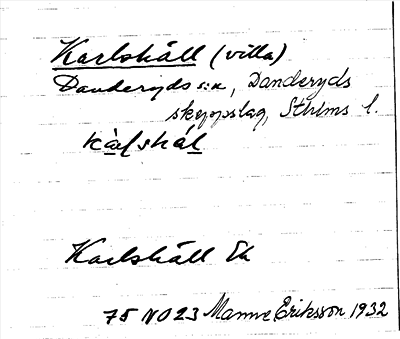 Karlshäll (villa)
Danderyds s:n, Danderyds
skeppslag, Sthlms l.
Karlshäll Ek
75 NO 23 Manne Eriksson 1932